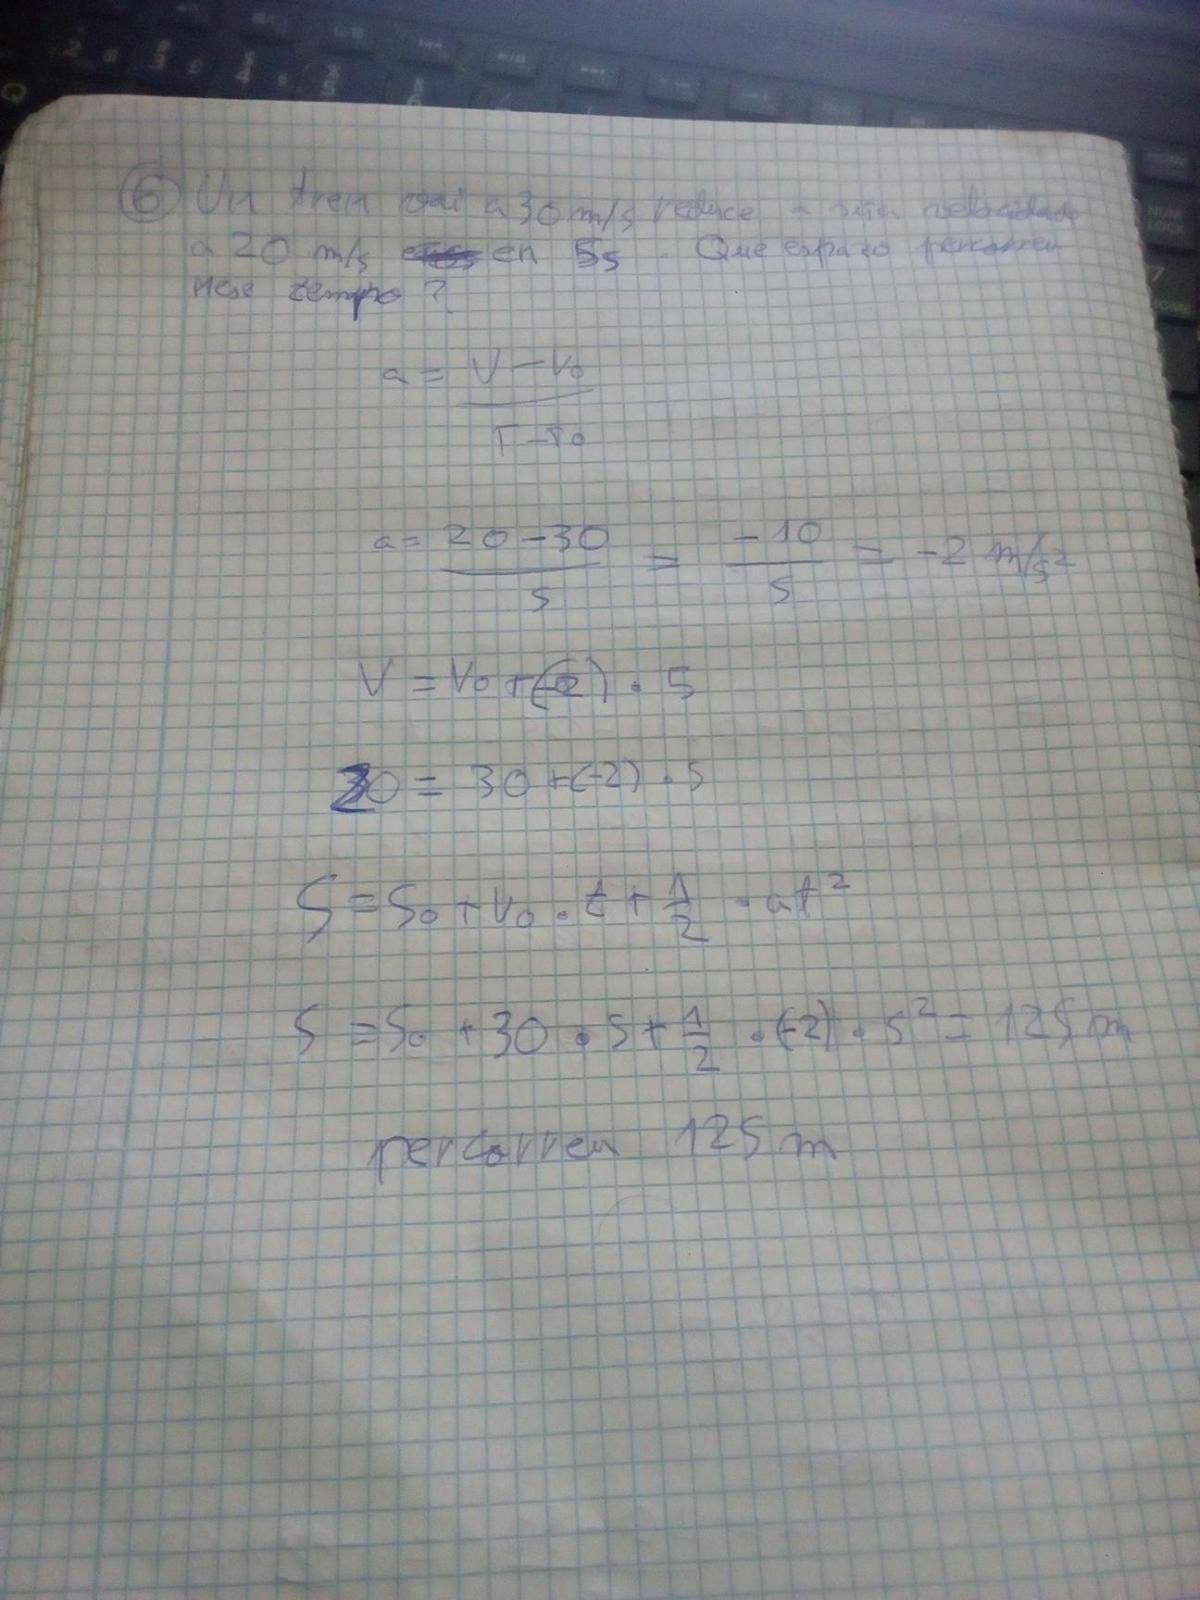 ⑥ Un tren vai a 30 m/s reduce a súa velocidade
a 20 m/s en 5s. Que espazo percorreu
nese tempo?
a = V - V₀ / T - T₀
a = 20 - 30 / 5 = -10 / 5 = -2 m/s²
V = V₀ + (-2) · 5
20 = 30 + (-2) · 5
S = S₀ + V₀ · t + 1/2 · at²
S = S₀ + 30 · 5 + 1/2 · (-2) · 5² = 125 m
percorreu 125 m